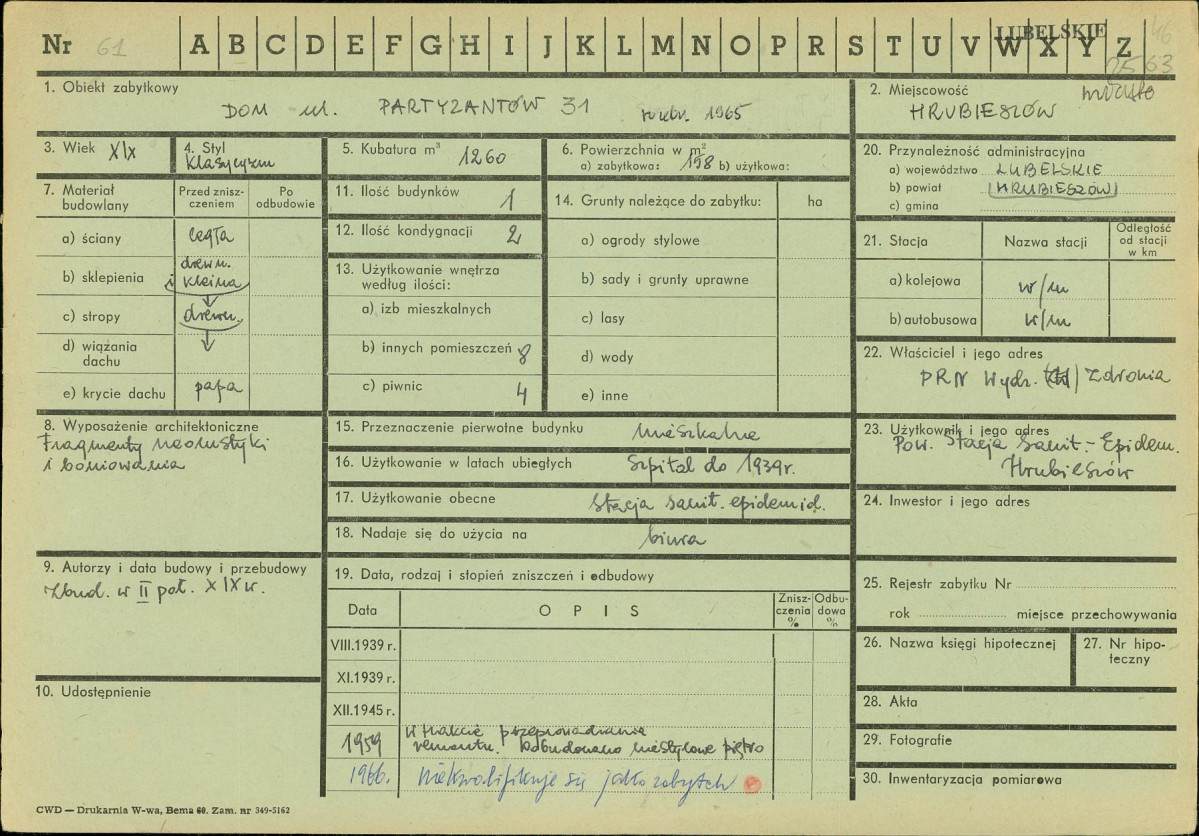 Nr 61 A B C D E F G H I J K L M N O P R S T U V W X Y Z
LUBELSKIE
46
63
1. Obiekt zabytkowy
DOM ul. PARTYZANTÓW 31 1965
2. Miejscowość
HRUBIESZÓW
miasto
3. Wiek XIX
4. Styl
Klasycyzm
5. Kubatura m³ 1260
6. Powierzchnia w m²
a) zabytkowa: 198 b) użytkowa:
20. Przynależność administracyjna
a) województwo LUBELSKIE
b) powiat (HRUBIESZÓW)
c) gmina
7. Materiał budowlany
Przed zniszczeniem
Po odbudowie
a) ściany cegła
b) sklepienia drewn.
i Kleina
c) stropy drewn.
d) wiązania dachu
e) krycie dachu papa
11. Ilość budynków 1
12. Ilość kondygnacji 2
13. Użytkowanie wnętrza
według ilości:
a) izb mieszkalnych
b) innych pomieszczeń 8
c) piwnic 4
14. Grunty należące do zabytku: ha
a) ogrody stylowe
b) sady i grunty uprawne
c) lasy
d) wody
e) inne
21. Stacja Nazwa stacji
Odległość
od stacji
w km
a) kolejowa w/m
b) autobusowa w/m
22. Właściciel i jego adres
PRN Wydz. Zdrowia
8. Wyposażenie architektoniczne
Fragmenty
i boniowania
15. Przeznaczenie pierwotne budynku mieszkalne
16. Użytkowanie w latach ubiegłych Szpital do 1939r.
17. Użytkowanie obecne Stacja sanit. epidemiol.
18. Nadaje się do użycia na biura
23. Użytkownik i jego adres
Pow. Stacja Sanit.-Epidem.
Hrubieszów
24. Inwestor i jego adres
9. Autorzy i data budowy i przebudowy
Zbud. w II poł. XIX w.
10. Udostępnienie
19. Data, rodzaj i stopień zniszczeń i odbudowy
Data OPIS
Znisz-
czenia
%
Odbu-
dowa
%
VIII.1939 r.
XI.1939 r.
XII.1945 r.
1959 W trakcie przeprowadzania
remontu. Odbudowano niestylowe piętro
1966. Niekwalifikuje się jako zabytek
25. Rejestr zabytku Nr
rok miejsce przechowywania
26. Nazwa księgi hipotecznej
27. Nr hipo-
teczny
28. Akta
29. Fotografie
30. Inwentaryzacja pomiarowa
CWD — Drukarnia W-wa, Bema 60. Zam. nr 349-5162